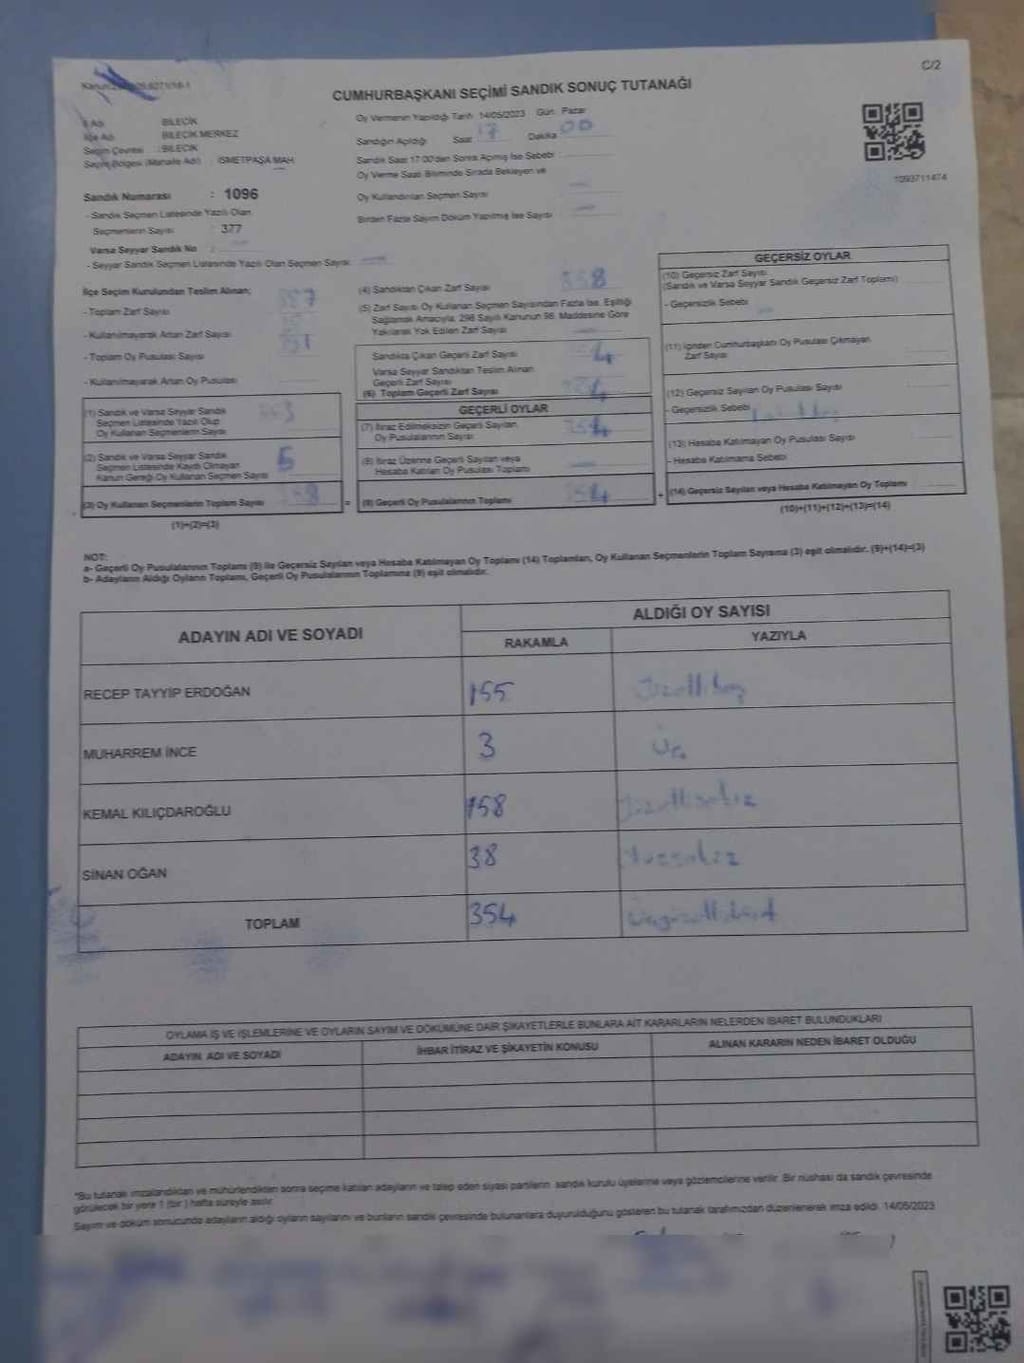 C/2
CUMHURBAŞKANI SEÇİMİ SANDIK SONUÇ TUTANAĞI
İl Adı : BİLECİK
İlçe Adı : BİLECİK MERKEZ
Seçim Çevresi : BİLECİK
Seçim Bölgesi (Mahalle Adı) : İSMETPAŞA MAH
Sandık Numarası : 1096
- Sandık Seçmen Listesinde Yazılı Olan
Seçmenlerin Sayısı : 377
Varsa Seyyar Sandık No
- Seyyar Sandık Seçmen Listesinde Yazılı Olan Seçmen Sayısı
Oy Vermenin Yapıldığı Tarih 14/05/2023 Gün: Pazar
Sandığın Açıldığı Saat 17 Dakika 00
Sandık Saat 17:00'den Sonra Açılmış İse Sebebi
Oy Verme Saati Bitiminde Sırada Bekleyen ve
Oy Kullandırılan Seçmen Sayısı
Birden Fazla Sayım Döküm Yapılmış İse Sayısı
1093711474
İlçe Seçim Kurulundan Teslim Alınan;
- Toplam Zarf Sayısı
- Kullanılmayarak Artan Zarf Sayısı
- Toplam Oy Pusulası Sayısı
- Kullanılmayarak Artan Oy Pusulası
(1) Sandık ve Varsa Seyyar Sandık
Seçmen Listesinde Yazılı Olup
Oy Kullanan Seçmenlerin Sayısı
(2) Sandık ve Varsa Seyyar Sandık
Seçmen Listesinde Kaydı Olmayan
Kanun Gereği Oy Kullanan Seçmen Sayısı 5
(3) Oy Kullanan Seçmenlerin Toplam Sayısı
(1)+(2)=(3)
(4) Sandıktan Çıkan Zarf Sayısı 358
(5) Zarf Sayısı Oy Kullanan Seçmen Sayısından Fazla İse, Eşitliği
Sağlamak Amacıyla, 298 Sayılı Kanunun 98. Maddesine Göre
Yakılarak Yok Edilen Zarf Sayısı
Sandıkta Çıkan Geçerli Zarf Sayısı
Varsa Seyyar Sandıktan Teslim Alınan
Geçerli Zarf Sayısı
(6) Toplam Geçerli Zarf Sayısı 354
GEÇERLİ OYLAR
(7) İtiraz Edilmeksizin Geçerli Sayılan
Oy Pusulalarının Sayısı 354
(8) İtiraz Üzerine Geçerli Sayılan veya
Hesaba Katılan Oy Pusulası Toplamı
= (9) Geçerli Oy Pusulalarının Toplamı 354 +
GEÇERSİZ OYLAR
(10) Geçersiz Zarf Sayısı
(Sandık ve Varsa Seyyar Sandık Geçersiz Zarf Toplamı)
- Geçersizlik Sebebi
(11) İçinden Cumhurbaşkanı Oy Pusulası Çıkmayan
Zarf Sayısı
(12) Geçersiz Sayılan Oy Pusulası Sayısı
- Geçersizlik Sebebi
(13) Hesaba Katılmayan Oy Pusulası Sayısı
- Hesaba Katılmama Sebebi
(14) Geçersiz Sayılan veya Hesaba Katılmayan Oy Toplamı
(10)+(11)+(12)+(13)=(14)
NOT:
a- Geçerli Oy Pusulalarının Toplamı (9) ile Geçersiz Sayılan veya Hesaba Katılmayan Oy Toplamı (14) Toplamları, Oy Kullanan Seçmenlerin Toplam Sayısına (3) eşit olmalıdır. (9)+(14)=(3)
b- Adayların Aldığı Oyların Toplamı, Geçerli Oy Pusulalarının Toplamına (9) eşit olmalıdır.
ADAYIN ADI VE SOYADI
ALDIĞI OY SAYISI
RAKAMLA YAZIYLA
RECEP TAYYİP ERDOĞAN 155 Yüzellibeş
MUHARREM İNCE 3 Üç
KEMAL KILIÇDAROĞLU 158 Yüzellisekiz
SİNAN OĞAN 38 Otuzsekiz
TOPLAM 354 Üçyüzellidört
OYLAMA İŞ VE İŞLEMLERİNE VE OYLARIN SAYIM VE DÖKÜMÜNE DAİR ŞİKAYETLERLE BUNLARA AİT KARARLARIN NELERDEN İBARET BULUNDUKLARI
ADAYIN ADI VE SOYADI İHBAR İTİRAZ VE ŞİKAYETİN KONUSU ALINAN KARARIN NEDEN İBARET OLDUĞU
*Bu tutanak imzalandıktan ve mühürlendikten sonra seçime katılan adayların ve talep eden siyasi partilerin sandık kurulu üyelerine veya gözlemcilerine verilir. Bir nüshası da sandık çevresinde
görülecek bir yere 1 (bir) hafta süreyle asılır.
Sayım ve döküm sonucunda adayların aldığı oyların sayılarını ve bunların sandık çevresinde bulunanlara duyurulduğunu gösteren bu tutanak tarafımızdan düzenlenerek imza edildi. 14/05/2023